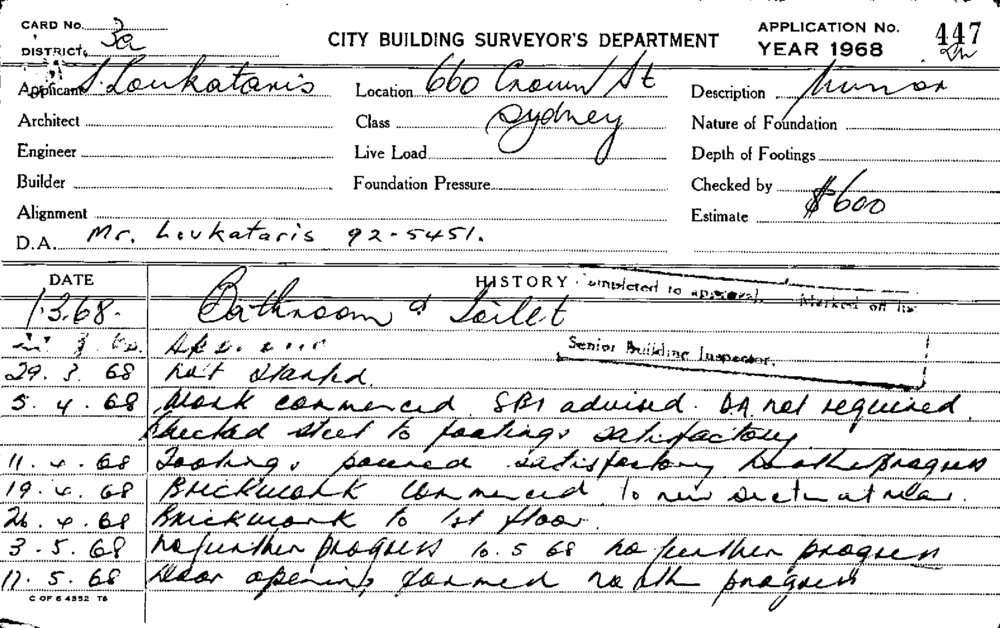 CARD No.
3a
DISTRICT
CITY BUILDING SURVEYOR'S DEPARTMENT
APPLICATION No. 447
YEAR 1968
Applicant S. Loukataris
Location 660 Crown St
Sydney
Description Minor
Architect
Class
Nature of Foundation
Engineer
Live Load
Depth of Footings
Builder
Foundation Pressure
Checked by
Alignment
Estimate $600
D.A. Mr. Loukataris 92-5451.
DATE HISTORY
completed to approval. Marked off list
Senior Building Inspector.
1.3.68. Bathroom & Toilet
29.3.68 Not Started.
5.4.68 Work commenced. SBI advised. DA not required.
Checked steel to footings satisfactory
11.4.68 Footings poured satisfactory no other progress
19.4.68 Brickwork commenced to new section at rear.
26.4.68 Brickwork to 1st floor.
3.5.68 No further progress 10.5.68 no further progress
17.5.68 Door opening formed no oth progress
C OF S 4352 T6